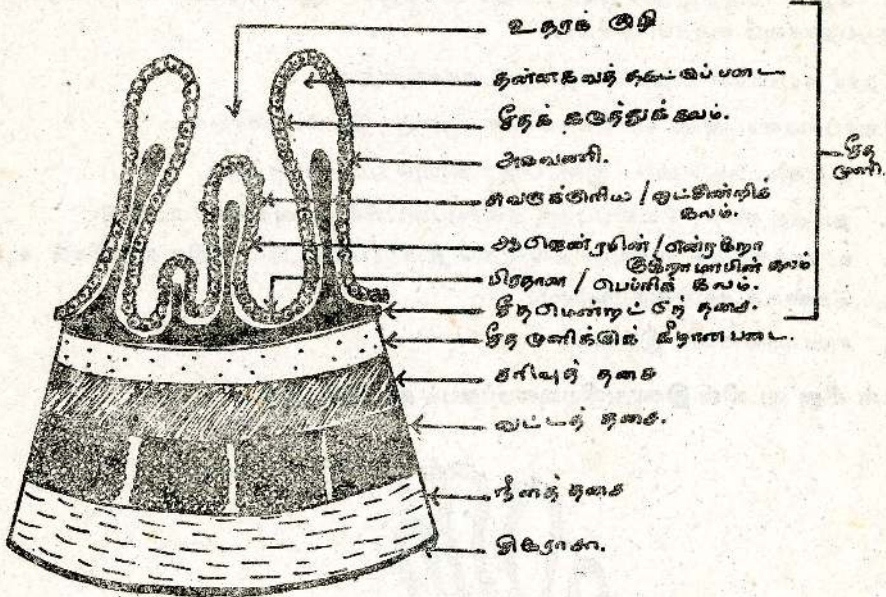 உதரக் குழி
தன்னகவுத் தகட்டுப் படை
சீதக் கருத்துக் கலம்.
அகவணி.
சுவருக்குரிய / ஒட்சின்றிக்
கலம்.
ஆஜென்ரமின் / என்ரறோ
குறோமாபின் கலம்
பிரதான / பெப்ரிக் கலம்.
சீதமென்றட் டூற் தசை.
சீத முளிக்குக் கீழான படை.
சரிவுத் தசை
வட்டத் தசை.
நீளத் தசை
சிரோசா.
சீத
முளி.